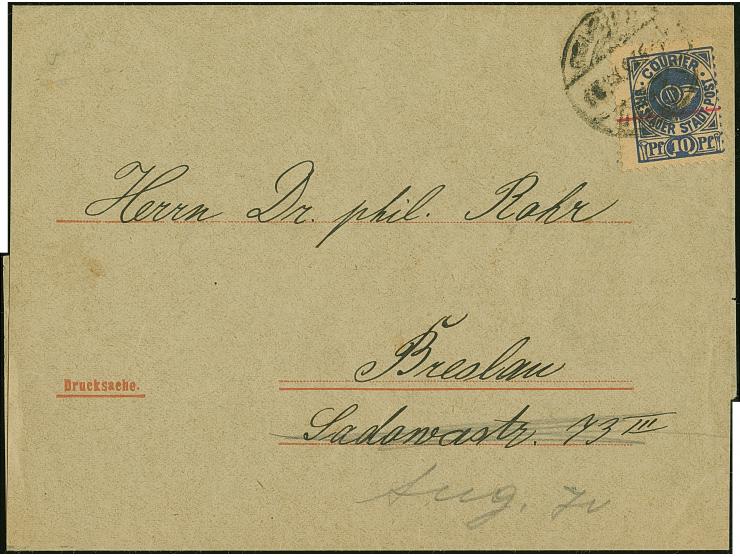 COURIER
BRESLAUER STADTPOST
Pf 10 Pf
Herrn Dr. phil. Rohr
Breslau
Drucksache.
Sadowastr. 73 III
Aug.